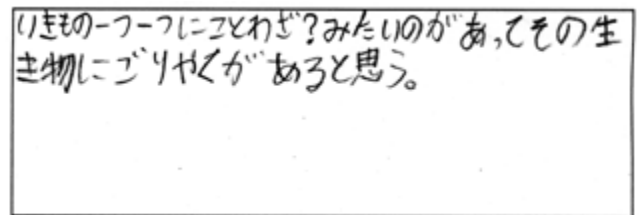 いきもの一つ一つにことわざ?みたいのがあってその生
き物にごりやくがあると思う。